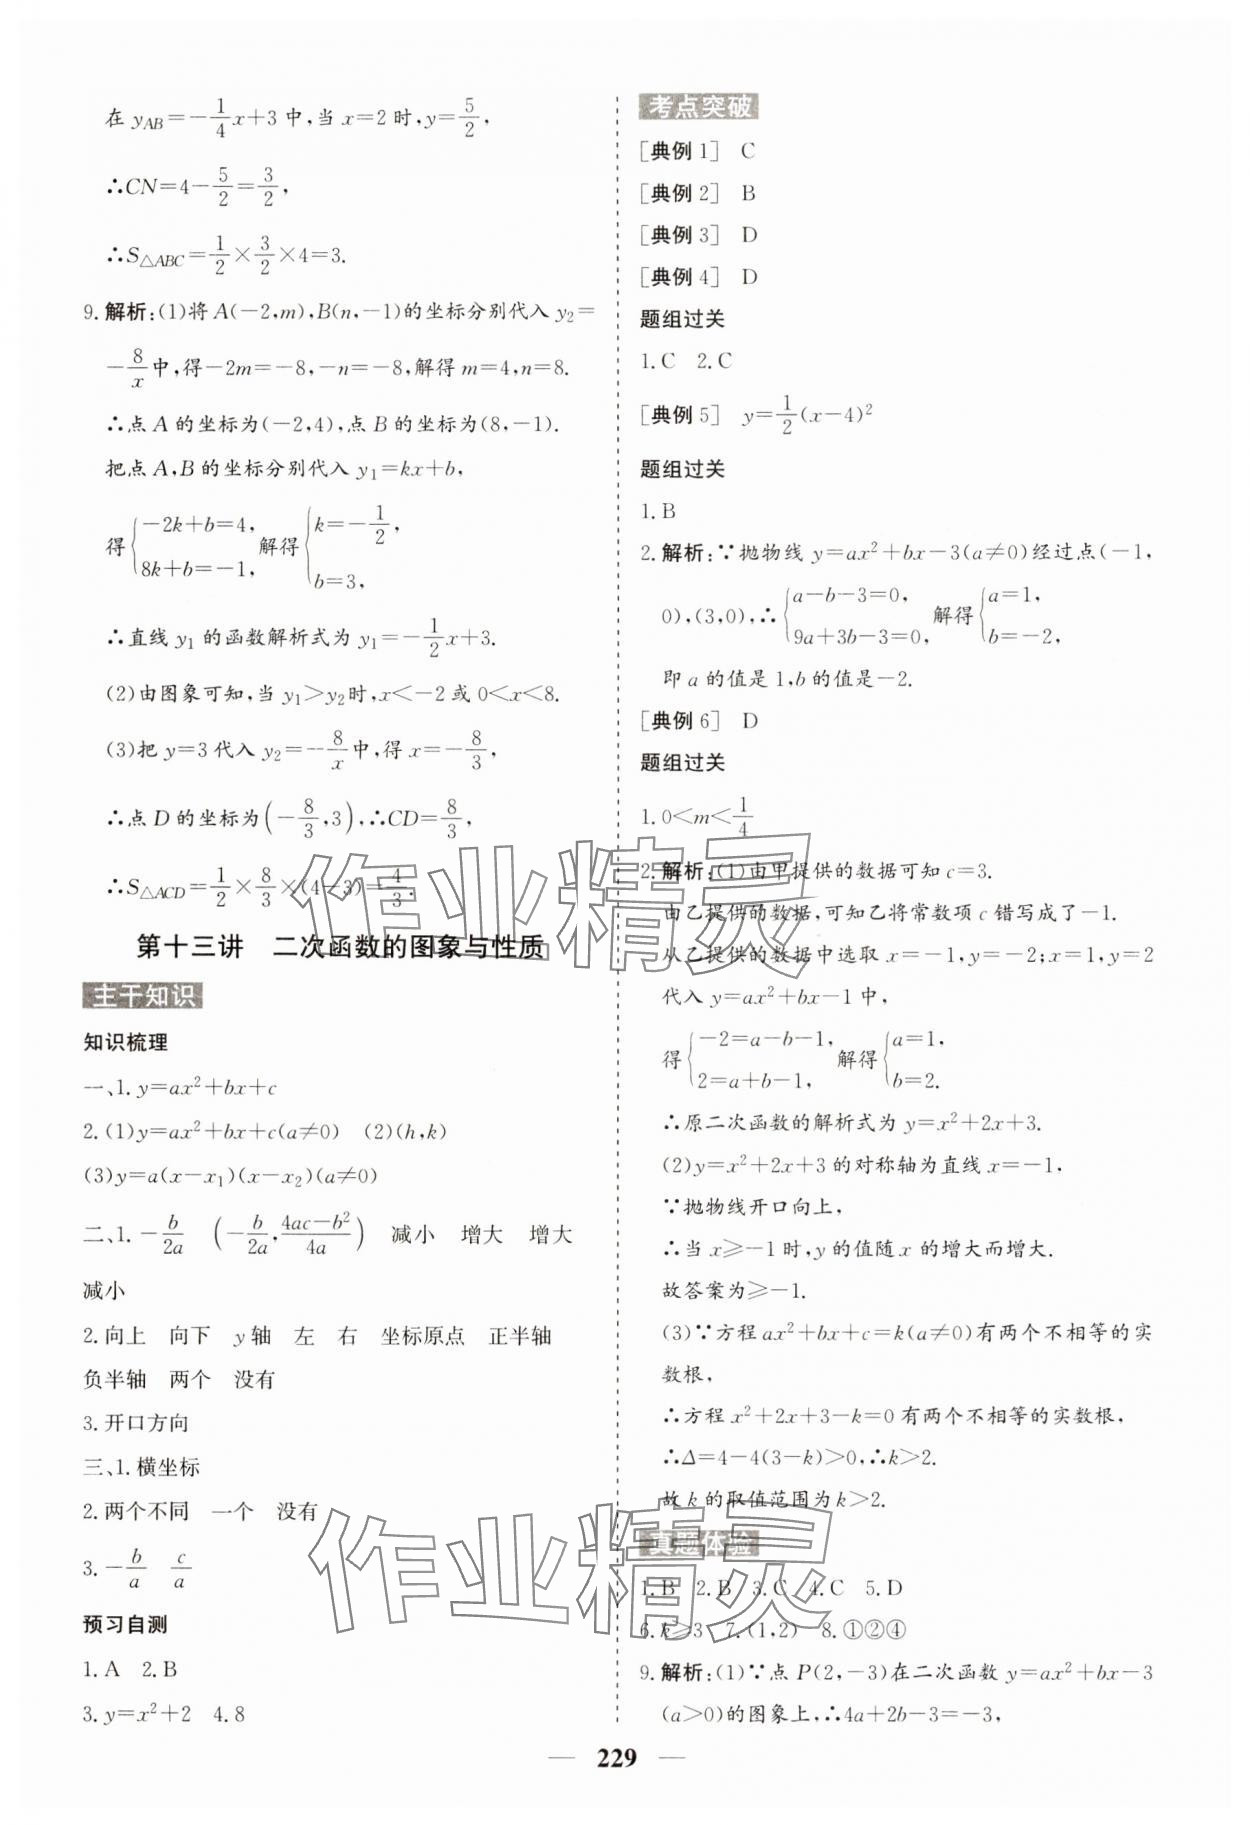 在 y_AB=-1/4x+3 中,当 x=2 时,y=5/2,
∴CN=4-5/2=3/2,
∴S△ABC=1/2×3/2×4=3.
9.解析:(1)将 A(-2,m),B(n,-1)的坐标分别代入 y₂=
-8/x中,得-2m=-8,-n=-8,解得 m=4,n=8.
∴点 A 的坐标为(-2,4),点 B 的坐标为(8,-1).
把点 A,B 的坐标分别代入 y₁=kx+b,
得{-2k+b=4, 8k+b=-1, 解得{k=-1/2, b=3,
∴直线 y₁ 的函数解析式为 y₁=-1/2x+3.
(2)由图象可知,当 y₁>y₂时,x<-2 或 0<x<8.
(3)把 y=3 代入 y₂=-8/x中,得 x=-8/3,
∴点 D 的坐标为(-8/3,3),∴CD=8/3,
∴S△ACD=1/2×8/3×(4-3)=4/3.
第十三讲 二次函数的图象与性质
主干知识
知识梳理
一、1.y=ax²+bx+c
2.(1)y=ax²+bx+c(a≠0) (2)(h,k)
(3)y=a(x-x₁)(x-x₂)(a≠0)
二、1.-b/2a (-b/2a,4ac-b²/4a) 减小 增大 增大
减小
2.向上 向下 y 轴 左 右 坐标原点 正半轴
负半轴 两个 没有
3.开口方向
三、1.横坐标
2.两个不同 一个 没有
3.-b/a c/a
预习自测
1.A 2.B
3.y=x²+2 4.8
考点突破
[典例 1] C
[典例 2] B
[典例 3] D
[典例 4] D
题组过关
1.C 2.C
[典例 5] y=1/2(x-4)²
题组过关
1.B
2.解析:∵抛物线 y=ax²+bx-3(a≠0)经过点(-1,
0),(3,0),∴{a-b-3=0, 9a+3b-3=0, 解得{a=1, b=-2,
即 a 的值是 1,b 的值是-2.
[典例 6] D
题组过关
1.0<m<1/4
2.解析:(1)由甲提供的数据可知 c=3.
由乙提供的数据,可知乙将常数项 c 错写成了-1.
从乙提供的数据中选取 x=-1,y=-2;x=1,y=2
代入 y=ax²+bx-1 中,
得{-2=a-b-1, 2=a+b-1, 解得{a=1, b=2.
∴原二次函数的解析式为 y=x²+2x+3.
(2)y=x²+2x+3 的对称轴为直线 x=-1,
∵抛物线开口向上,
∴当 x≥-1 时,y 的值随 x 的增大而增大.
故答案为≥-1.
(3)∵方程 ax²+bx+c=k(a≠0)有两个不相等的实
数根,
∴方程 x²+2x+3-k=0 有两个不相等的实数根,
∴Δ=4-4(3-k)>0,∴k>2.
故 k 的取值范围为 k>2.
真题体验
1.B 2.B 3.C 4.C 5.D
6.k≥3 7.(1,2) 8.①②④
9.解析:(1)∵点 P(2,-3)在二次函数 y=ax²+bx-3
(a>0)的图象上,∴4a+2b-3=-3,
— 229 —
作业精灵
作业精灵